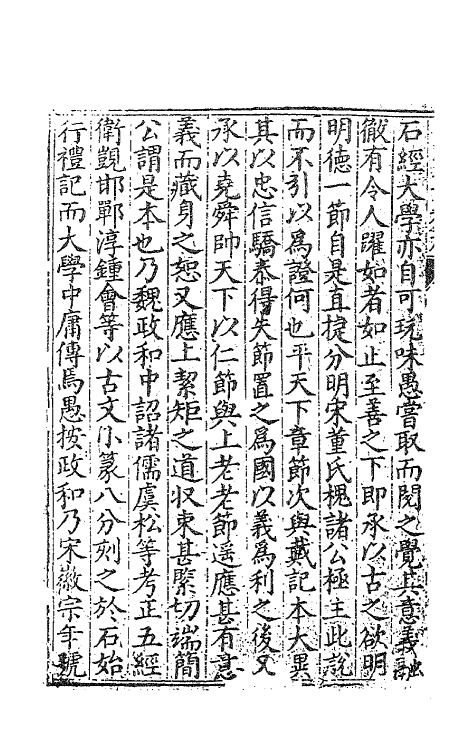 石經大學亦自可玩味愚嘗取而閱之覺其意義融
徹有令人躍如者如止至善之下即承以古之欲明
明德一節自是直捷分明宋董氏槐諸公極主此說
而不引以為證何也平天下章節次與戴記本大異
其以忠信驕泰得失節置之為國以義為利之後又
承以堯舜帥天下以仁節與上老老節遥應甚有意
義而藏身之恕又應上絜矩之道収束甚緊切端簡
公謂是本也乃魏政和中詔諸儒虞松等考正五經
衛覬邯鄲淳鍾會等以古文小篆八分刻之於石始
行禮記而大學中庸傳焉愚按政和乃宋徽宗年號